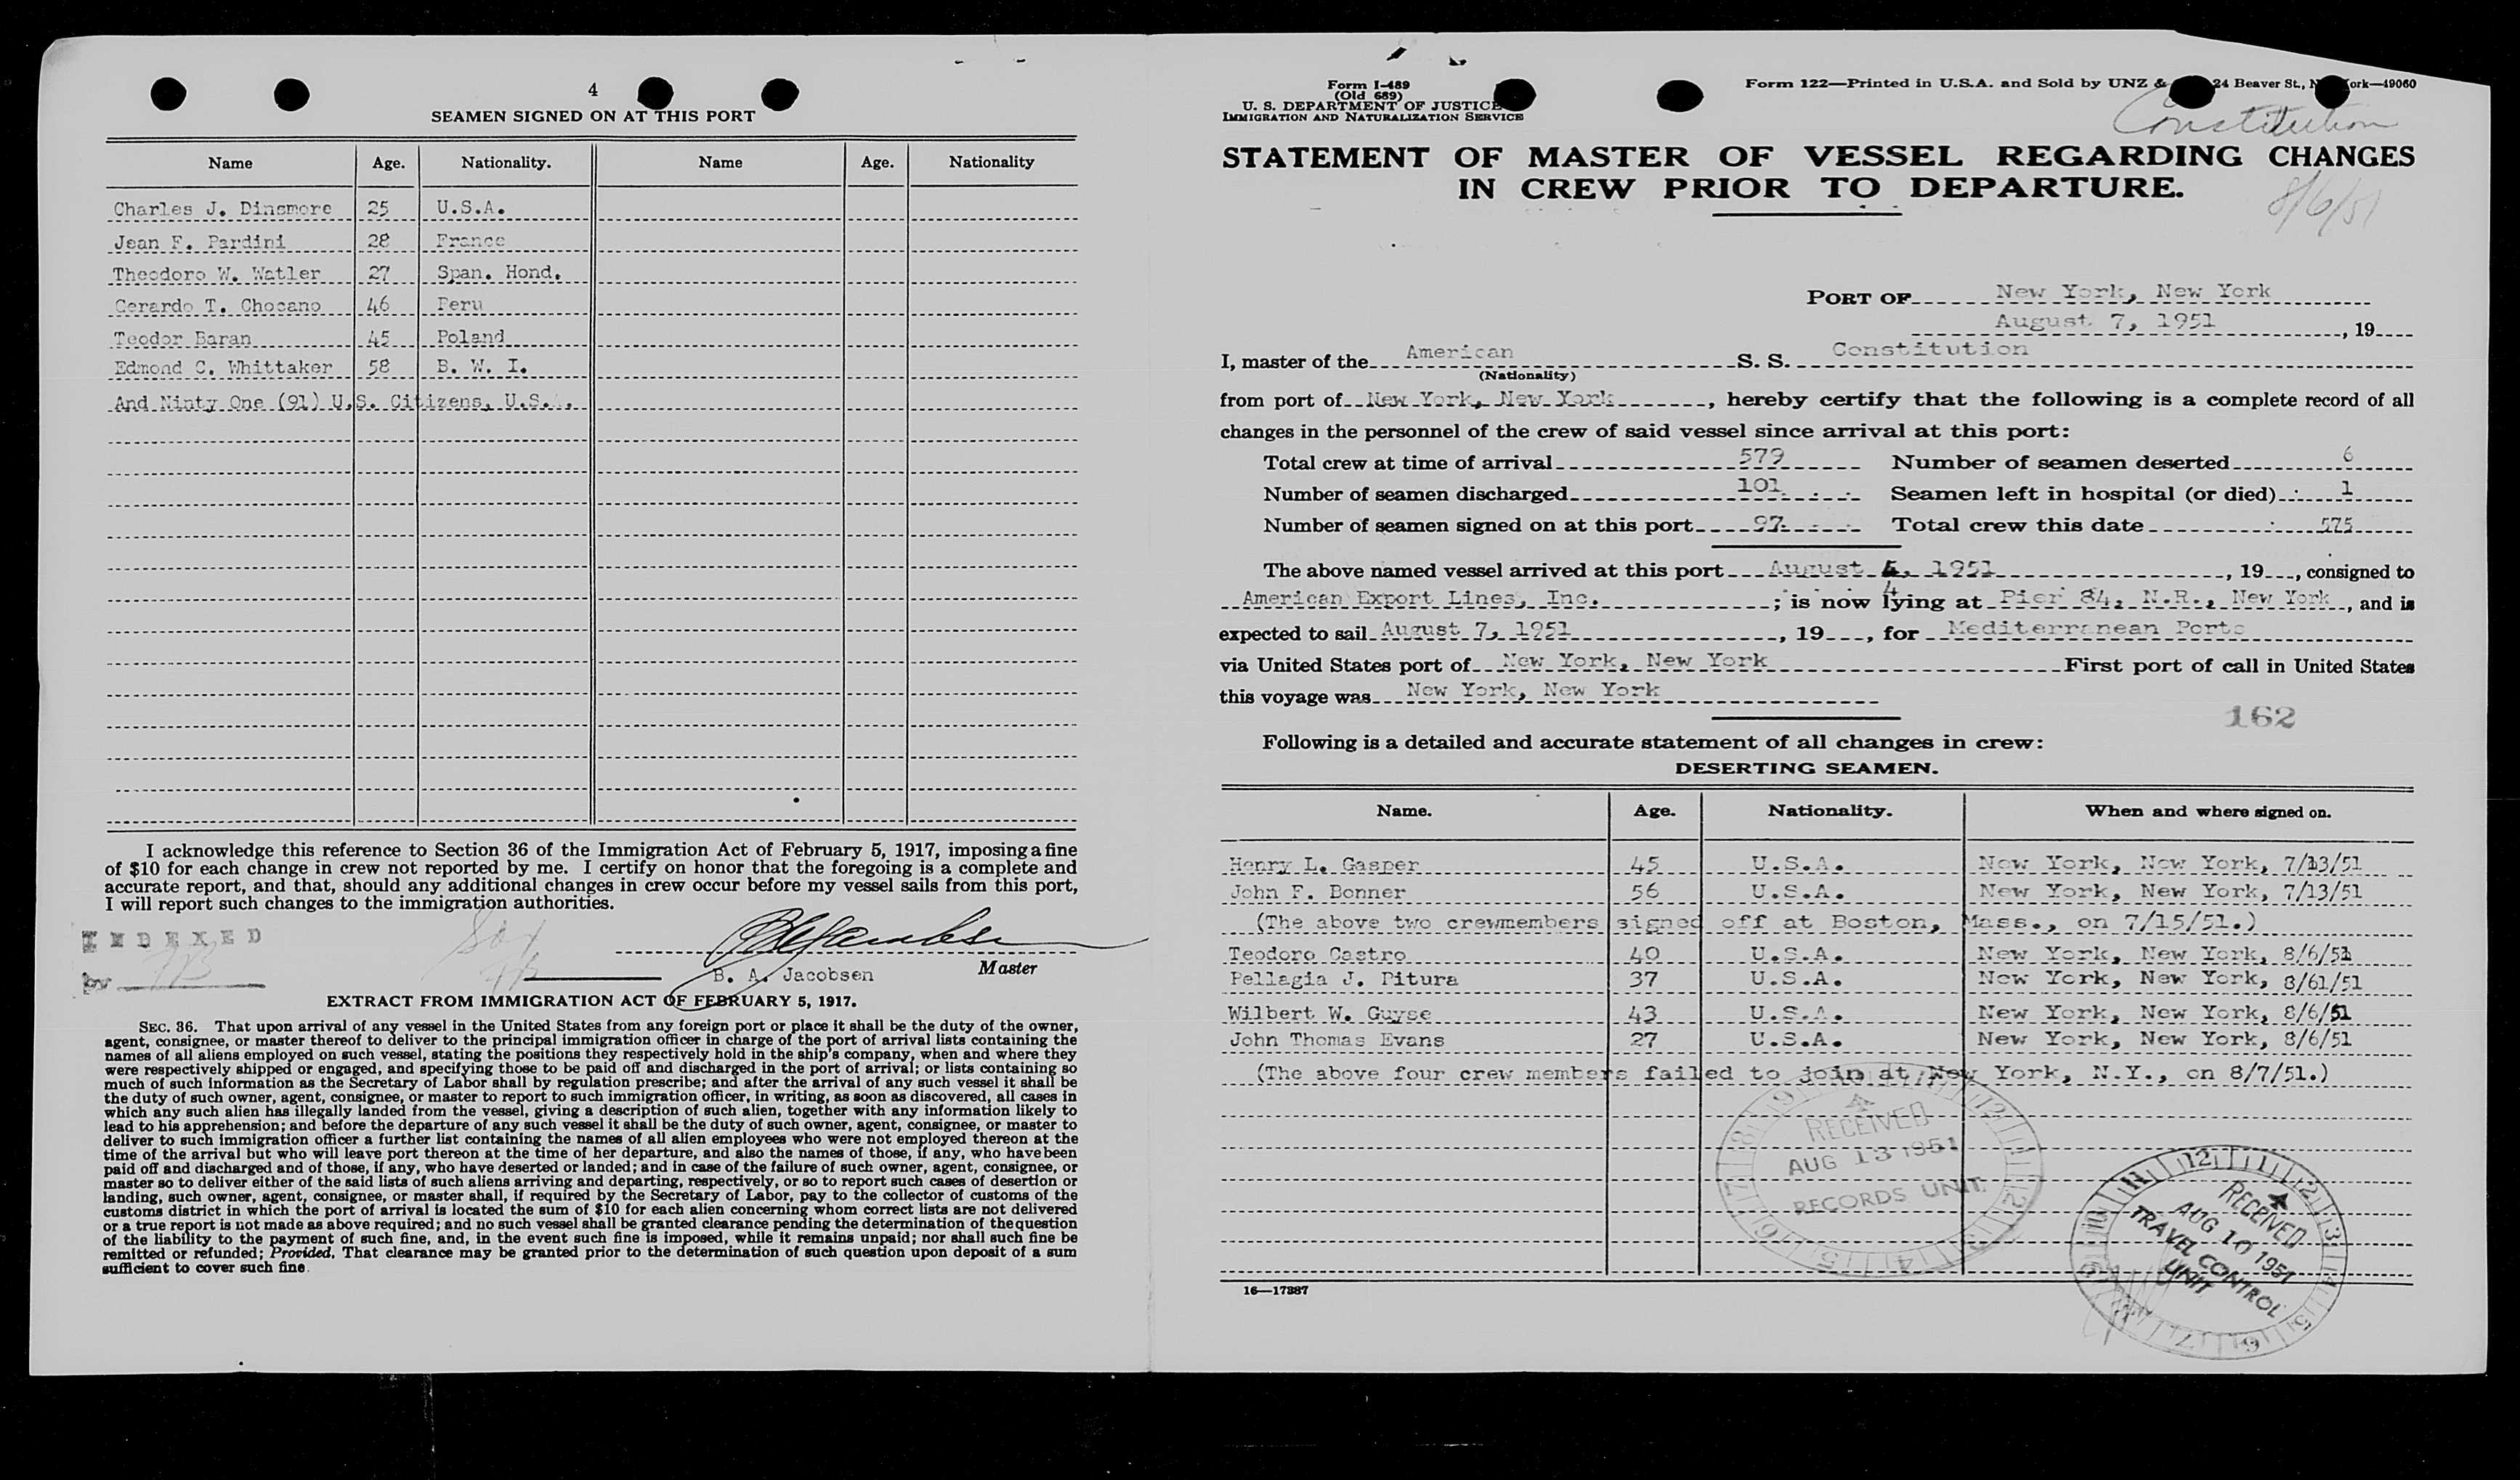 4
SEAMEN SIGNED ON AT THIS PORT
Name Age. Nationality. Name Age. Nationality
Charles J. Dinsmore 25 U.S.A.
Jean F. Pardini 28 France
Theodoro W. Watler 27 Span. Hond.
Gerardo T. Chocano 46 Peru
Teodor Baran 45 Poland
Edmond C. Whittaker 58 B. W. I.
And Ninty One (91) U.S. Citizens, U.S.A.
I acknowledge this reference to Section 36 of the Immigration Act of February 5, 1917, imposing a fine
of $10 for each change in crew not reported by me. I certify on honor that the foregoing is a complete and
accurate report, and that, should any additional changes in crew occur before my vessel sails from this port,
I will report such changes to the immigration authorities.
INDEXED
by
B. A. Jacobsen Master
EXTRACT FROM IMMIGRATION ACT OF FEBRUARY 5, 1917.
SEC. 36. That upon arrival of any vessel in the United States from any foreign port or place it shall be the duty of the owner,
agent, consignee, or master thereof to deliver to the principal immigration officer in charge of the port of arrival lists containing the
names of all aliens employed on such vessel, stating the positions they respectively hold in the ship's company, when and where they
were respectively shipped or engaged, and specifying those to be paid off and discharged in the port of arrival; or lists containing so
much of such information as the Secretary of Labor shall by regulation prescribe; and after the arrival of any such vessel it shall be
the duty of such owner, agent, consignee, or master to report to such immigration officer, in writing, as soon as discovered, all cases in
which any such alien has illegally landed from the vessel, giving a description of such alien, together with any information likely to
lead to his apprehension; and before the departure of any such vessel it shall be the duty of such owner, agent, consignee, or master to
deliver to such immigration officer a further list containing the names of all alien employees who were not employed thereon at the
time of the arrival but who will leave port thereon at the time of her departure, and also the names of those, if any, who have been
paid off and discharged and of those, if any, who have deserted or landed; and in case of the failure of such owner, agent, consignee, or
master so to deliver either of the said lists of such aliens arriving and departing, respectively, or so to report such cases of desertion or
landing, such owner, agent, consignee, or master shall, if required by the Secretary of Labor, pay to the collector of customs of the
customs district in which the port of arrival is located the sum of $10 for each alien concerning whom correct lists are not delivered
or a true report is not made as above required; and no such vessel shall be granted clearance pending the determination of the question
of the liability to the payment of such fine, and, in the event such fine is imposed, while it remains unpaid; nor shall such fine be
remitted or refunded; Provided, That clearance may be granted prior to the determination of such question upon deposit of a sum
sufficient to cover such fine.
Form I-489
(Old 689)
U. S. DEPARTMENT OF JUSTICE
IMMIGRATION AND NATURALIZATION SERVICE
Form 122—Printed in U.S.A. and Sold by UNZ & 24 Beaver St., N ork—49060
Constitution
STATEMENT OF MASTER OF VESSEL REGARDING CHANGES
IN CREW PRIOR TO DEPARTURE.
8/6/51
PORT OF New York, New York
August 7, 1951, 19
I, master of the American S. S. Constitution
(Nationality)
from port of New York, New York, hereby certify that the following is a complete record of all
changes in the personnel of the crew of said vessel since arrival at this port:
Total crew at time of arrival 579 Number of seamen deserted 6
Number of seamen discharged 101 Seamen left in hospital (or died) 1
Number of seamen signed on at this port 97 Total crew this date 575
The above named vessel arrived at this port August 4, 1951, 19, consigned to
American Export Lines, Inc. ; is now lying at Pier 84, N.R., New York, and is
expected to sail August 7, 1951, 19, for Mediterranean Ports
via United States port of New York, New York First port of call in United States
this voyage was New York, New York
162
Following is a detailed and accurate statement of all changes in crew:
DESERTING SEAMEN.
Name. Age. Nationality. When and where signed on.
Henry L. Gasper 45 U.S.A. New York, New York, 7/13/51
John F. Bonner 56 U.S.A. New York, New York, 7/13/51
(The above two crewmembers signed off at Boston, Mass., on 7/15/51.)
Teodoro Castro 40 U.S.A. New York, New York, 8/6/51
Pellagia J. Pitura 37 U.S.A. New York, New York, 8/61/51
Wilbert W. Guyse 43 U.S.A. New York, New York, 8/6/51
John Thomas Evans 27 U.S.A. New York, New York, 8/6/51
(The above four crew members failed to join at New York, N.Y., on 8/7/51.)
RECEIVED
AUG 13 1951
RECORDS UNIT
RECEIVED
AUG 10 1951
TRAVEL CONTROL
UNIT
16—17387